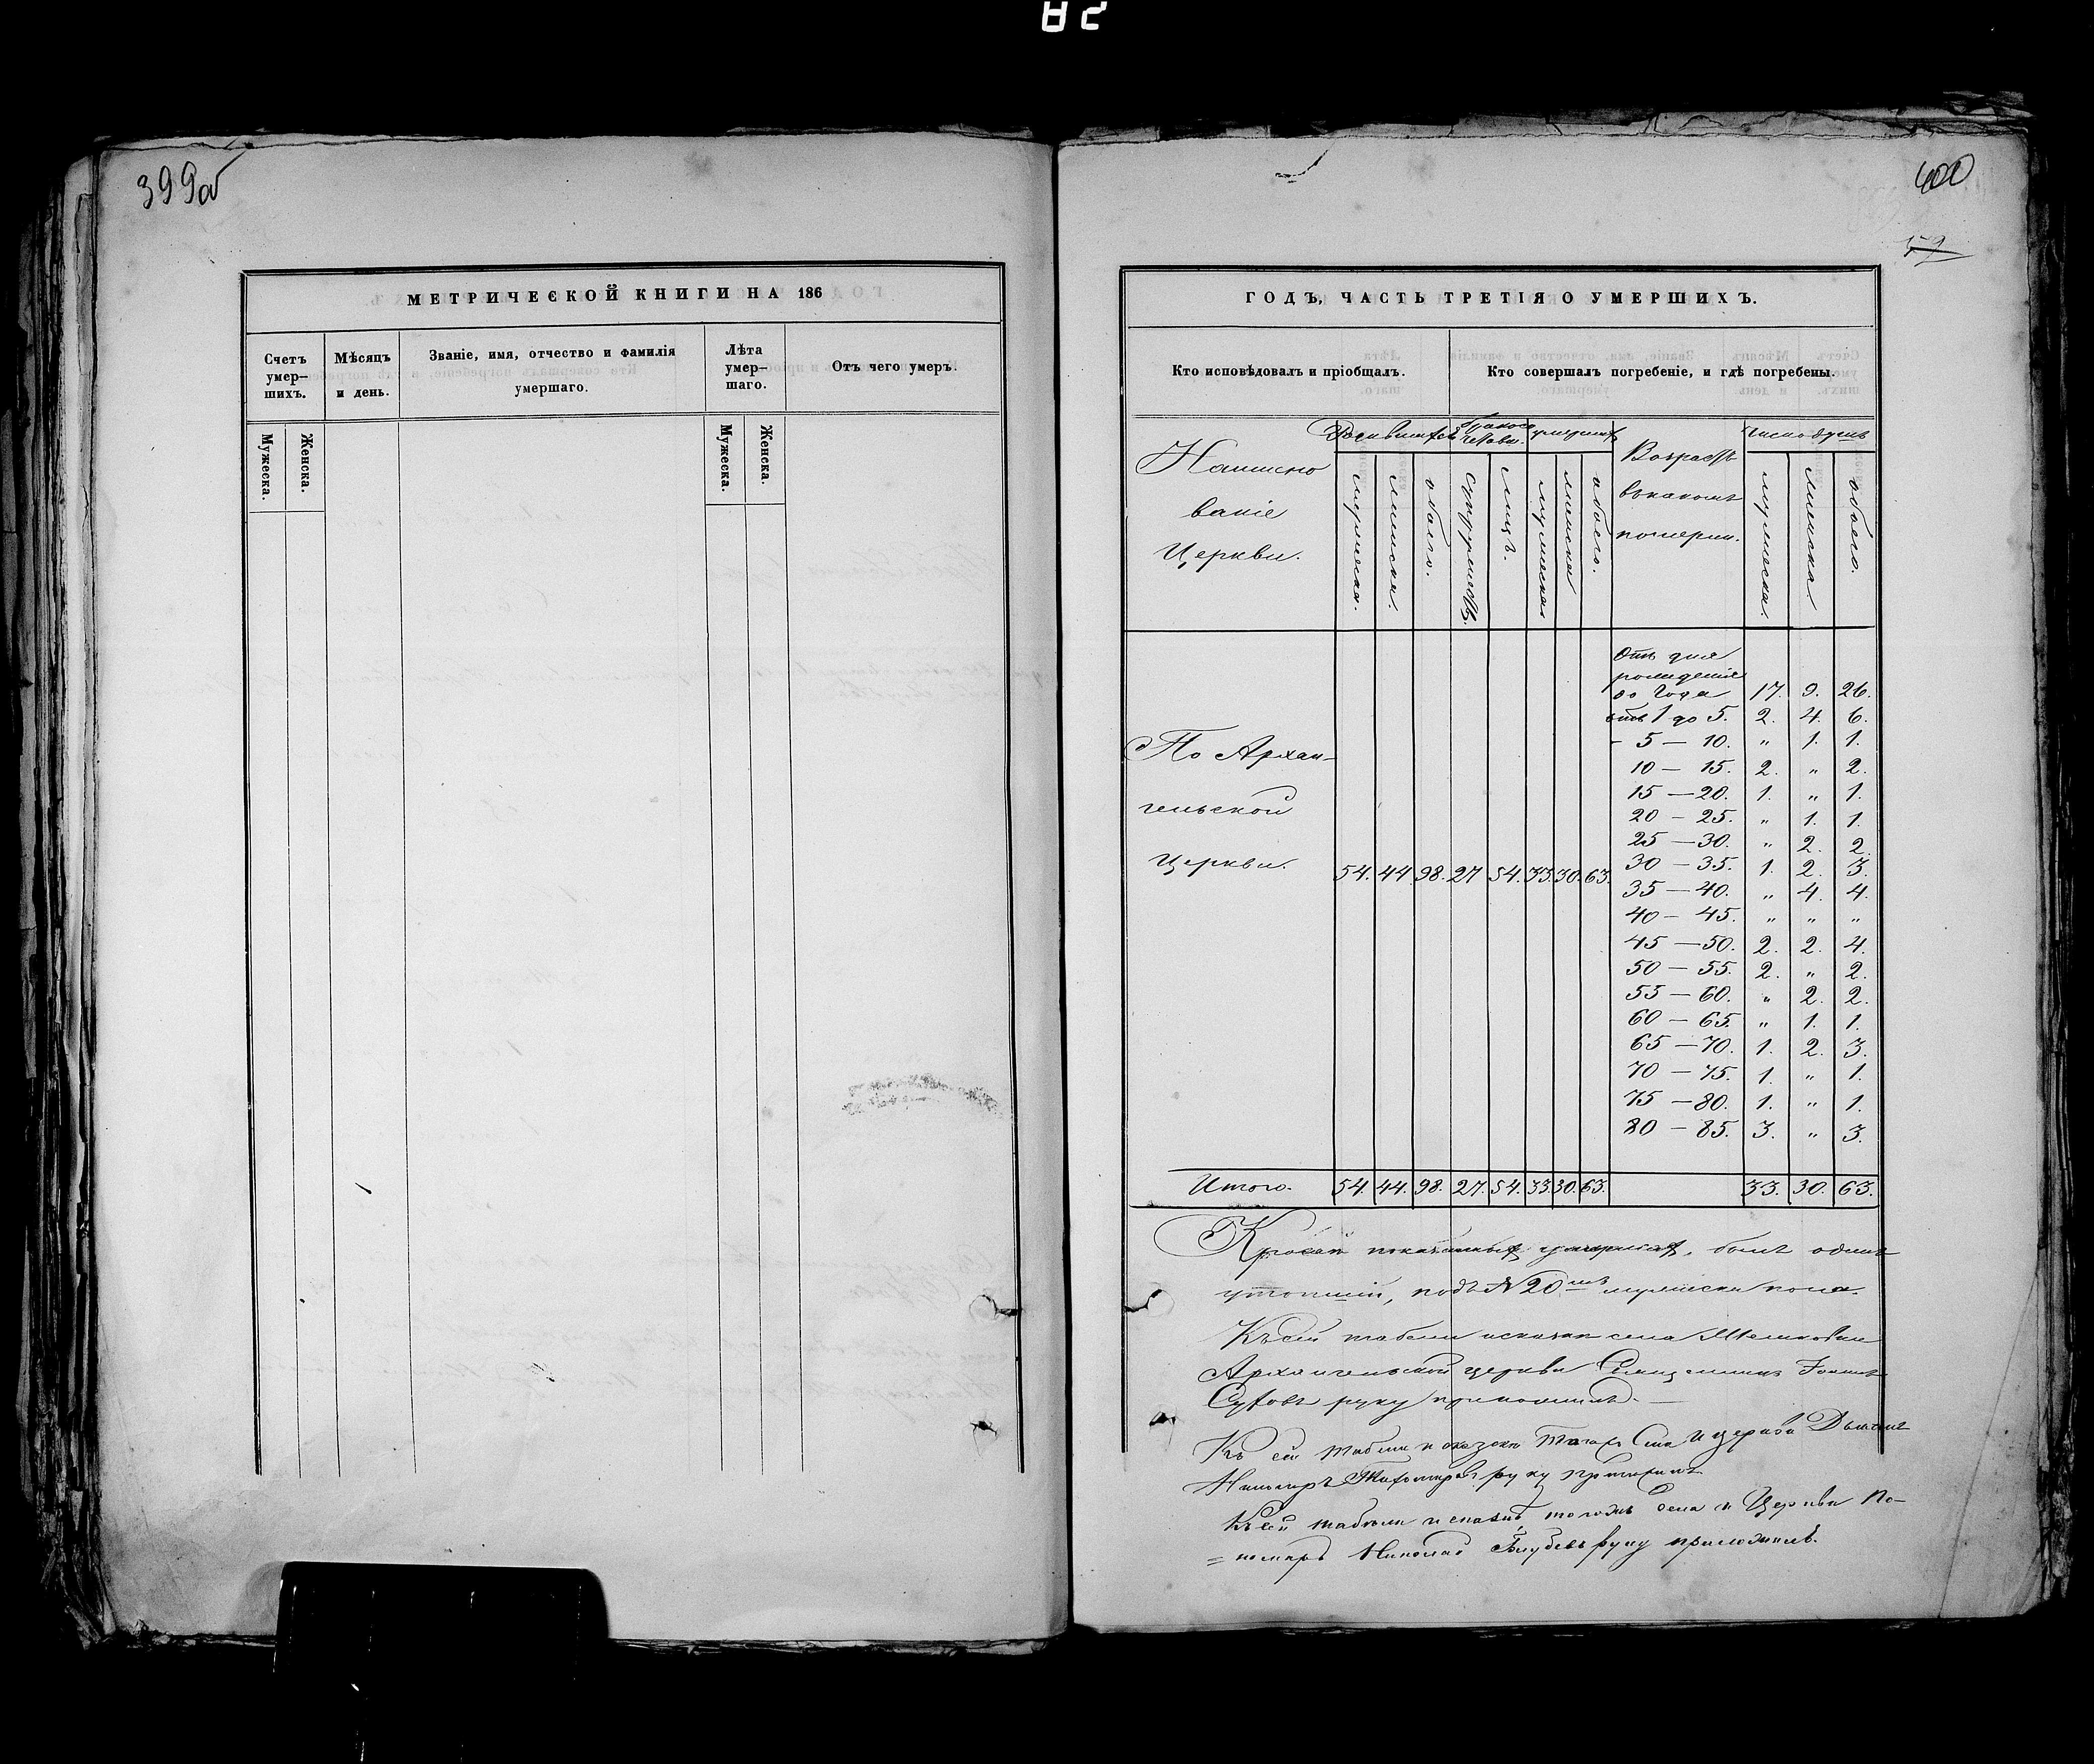 82
399об
МЕТРИЧЕСКОЙ КНИГИ НА 186
Счетъ умер-шихъ.
Мѣсяцъ и день.
Званіе, имя, отчество и фамилія умершаго.
Лѣта умер-шаго.
Отъ чего умеръ.
Мужеска.
Женска.
Мужеска.
Женска.
400
ГОДЪ, ЧАСТЬ ТРЕТІЯ О УМЕРШИХЪ.
Кто исповѣдовалъ и пріобщалъ.
Кто совершалъ погребеніе, и гдѣ погребены.
Наимено
ваніе
Церкви.
мужеска.
женска.
обоего.
супружествъ.
лицъ.
мужеска
женска
обоего.
Возрастъ
въ какомъ
померли.
число душъ
мужеска.
женска
обоего.
По Архан-
гельской
Церкви. 54. 44 98. 27 54. 33. 30. 63.
Отъ дня
рожденія
до года 17. 9. 26.
отъ 1 до 5. 2. 4. 6.
- 5 — 10. „ 1. 1.
10 — 15. 2. „ 2.
15 — 20. 1. „ 1.
20 — 25. „ 1. 1.
25 — 30. „ 2. 2.
30 — 35. 1. 2. 3.
35 — 40. „ 4. 4.
40 — 45. „ „ „
45 — 50. 2. 2. 4.
50 — 55. 2. „ 2.
55 — 60. „ 2. 2.
60 — 65. „ 1. 1.
65 — 70. 1. 2. 3.
70 — 75. 1. „ 1.
75 — 80. 1. „ 1.
80 — 85. 3. „ 3.
Итого. 54. 44. 98. 27. 54. 33 30. 63. 33. 30. 63.
умершихъ, былъ одинъ
утопшій, подъ №20мъ мужеска пола.
Къ сей табели села
Архангельской церкви Священникъ Іоаннъ
руку приложилъ.
Къ сей табели и церкви
руку приложилъ
Къ сей табели тогожъ села и Церкви По-
=номарь Николай руку приложилъ.